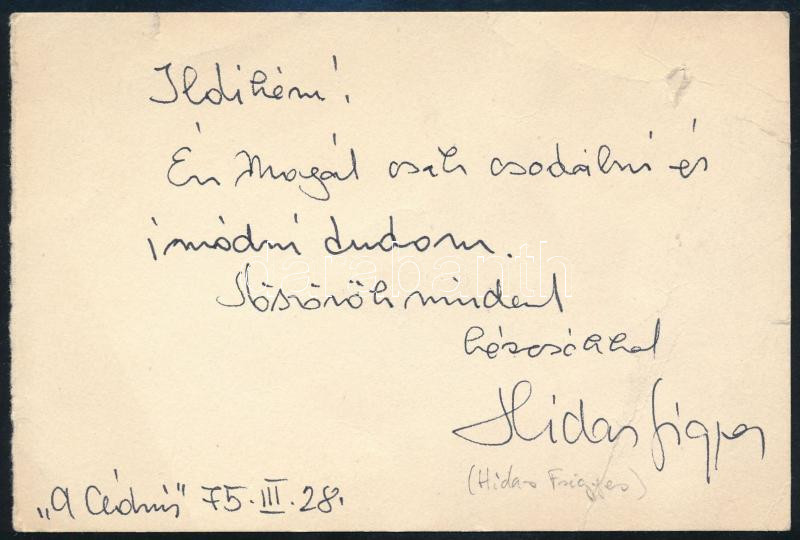 Ildikém!
Én Magát csak csodálni és
imádni tudom.
Köszönök mindent
kézcsókkal
Hidas Frigyes
(Hidas Frigyes)
„A Cédrus" 75.III.28.
darabanth